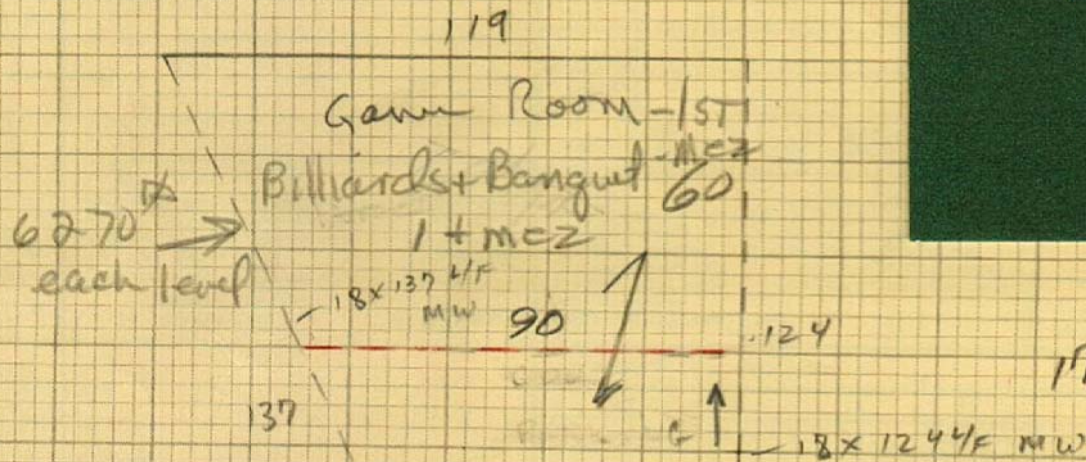 119
Game Room - 1ST
Billiards + Banquet - Mez
60
1 + mez
6270
each level
18 x 137 L/F
MW
90
124
137
G
18 x 124 L/F MW